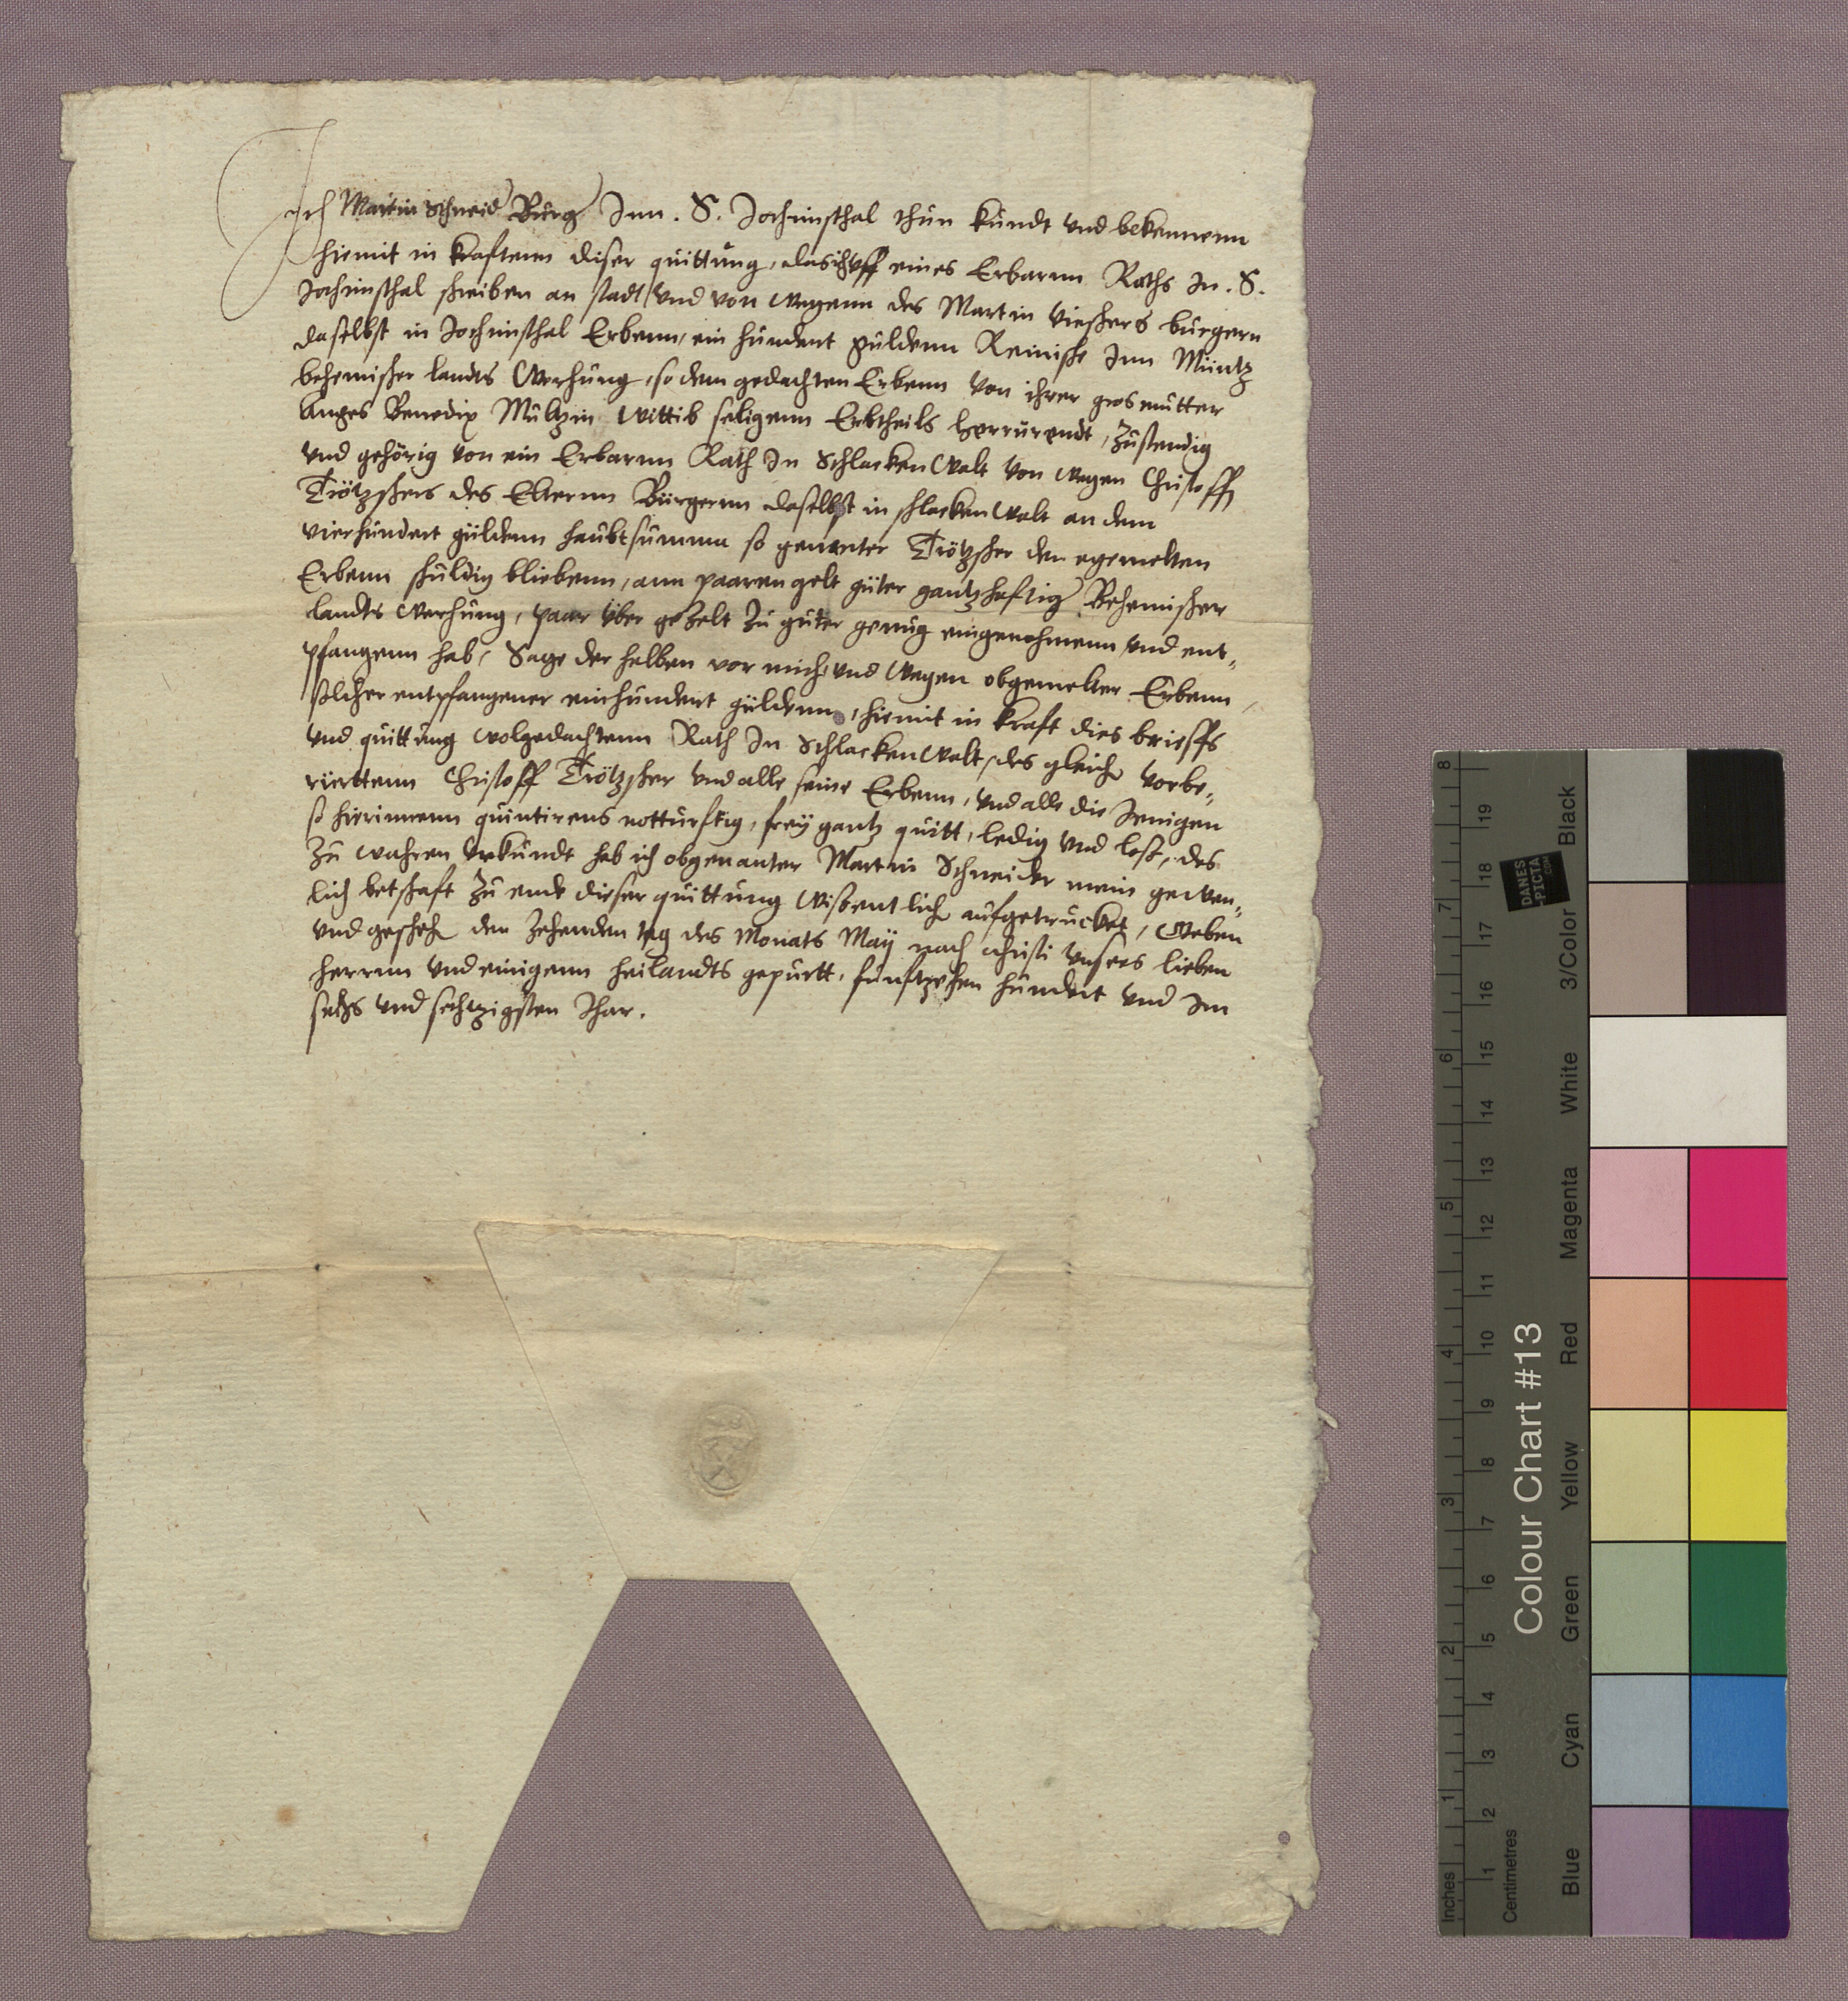 Ich Martin Schneid Burg Inn . S . Jochimsthal thun kundt vnd bekennenn
hiemit in krafftenn diser quittung, das ich vff eines Erbarnn Raths In . S .
Jochimsthal schreiben an stadt vnd von wegenn des Martin vischers burgern
daselbst in Jochimsthal Erbenn, ein hundert guldenn Reinische Inn Müntz
behemischer landts Werhung, so dem gedachten Erbenn von ihrer grosmutter
Anges Benedix Mültzin Wittib seligenn Erbtheils herrurendt, zustendig
vnd gehörig von ein Erbarnn Rath In Schlackenwalt von wegen Christoff
Trötzschers des Elternn Bürgernn daselbst in schlackenwalt an dem
vierhundert guldenn haubtsumma so genanter Trötzscher den egemelten
Erbenn schuldig bliebenn, ann paaren gelt guter gantzhafftig Behemischer
landts werhung, paar vber gezelt zu guter genug eingenohmenn vnd ent,,
pfangenn hab, Sage derhalben vor mich vnd wegen obgemelter Erbenn,
solcher entpfangener einhundert guldenn, hiemit in krafft dies brieffs
vnd quittung wolgedachtenn Rath In Schlackenwalt, des gleich vorbe,,
rürttenn Christoff Trötzscher vnd alle seine Erbenn, vnd alle die Jenigen
so hierinnenn quintirens notturfftig, freÿ gantz quitt, ledig vnd loß, des
zu wahren vrkundt hab ich obgenanter Martin Schneider mein gewen,,
lich betschafft zu ende dieser quittung wissentlich aufgetrucket, Geben
vnd gescheh den zehenden tag des Monats Maÿ nach christi vnsers lieben
herrnn vnd einigenn heilandts gepurtt, funfftzehen hundert vnd Im
sechs vnd sechtzigsten Jhar .
8 7 6 5 4 3 2 1 Inches
19 18 17 16 15 14 13 12 11 10 9 8 7 6 5 4 3 2 1 Centimetres
DANES
-PICTA
.COM
Colour Chart #13
Black
3/Color
White
Magenta
Red
Yellow
Green
Cyan
Blue